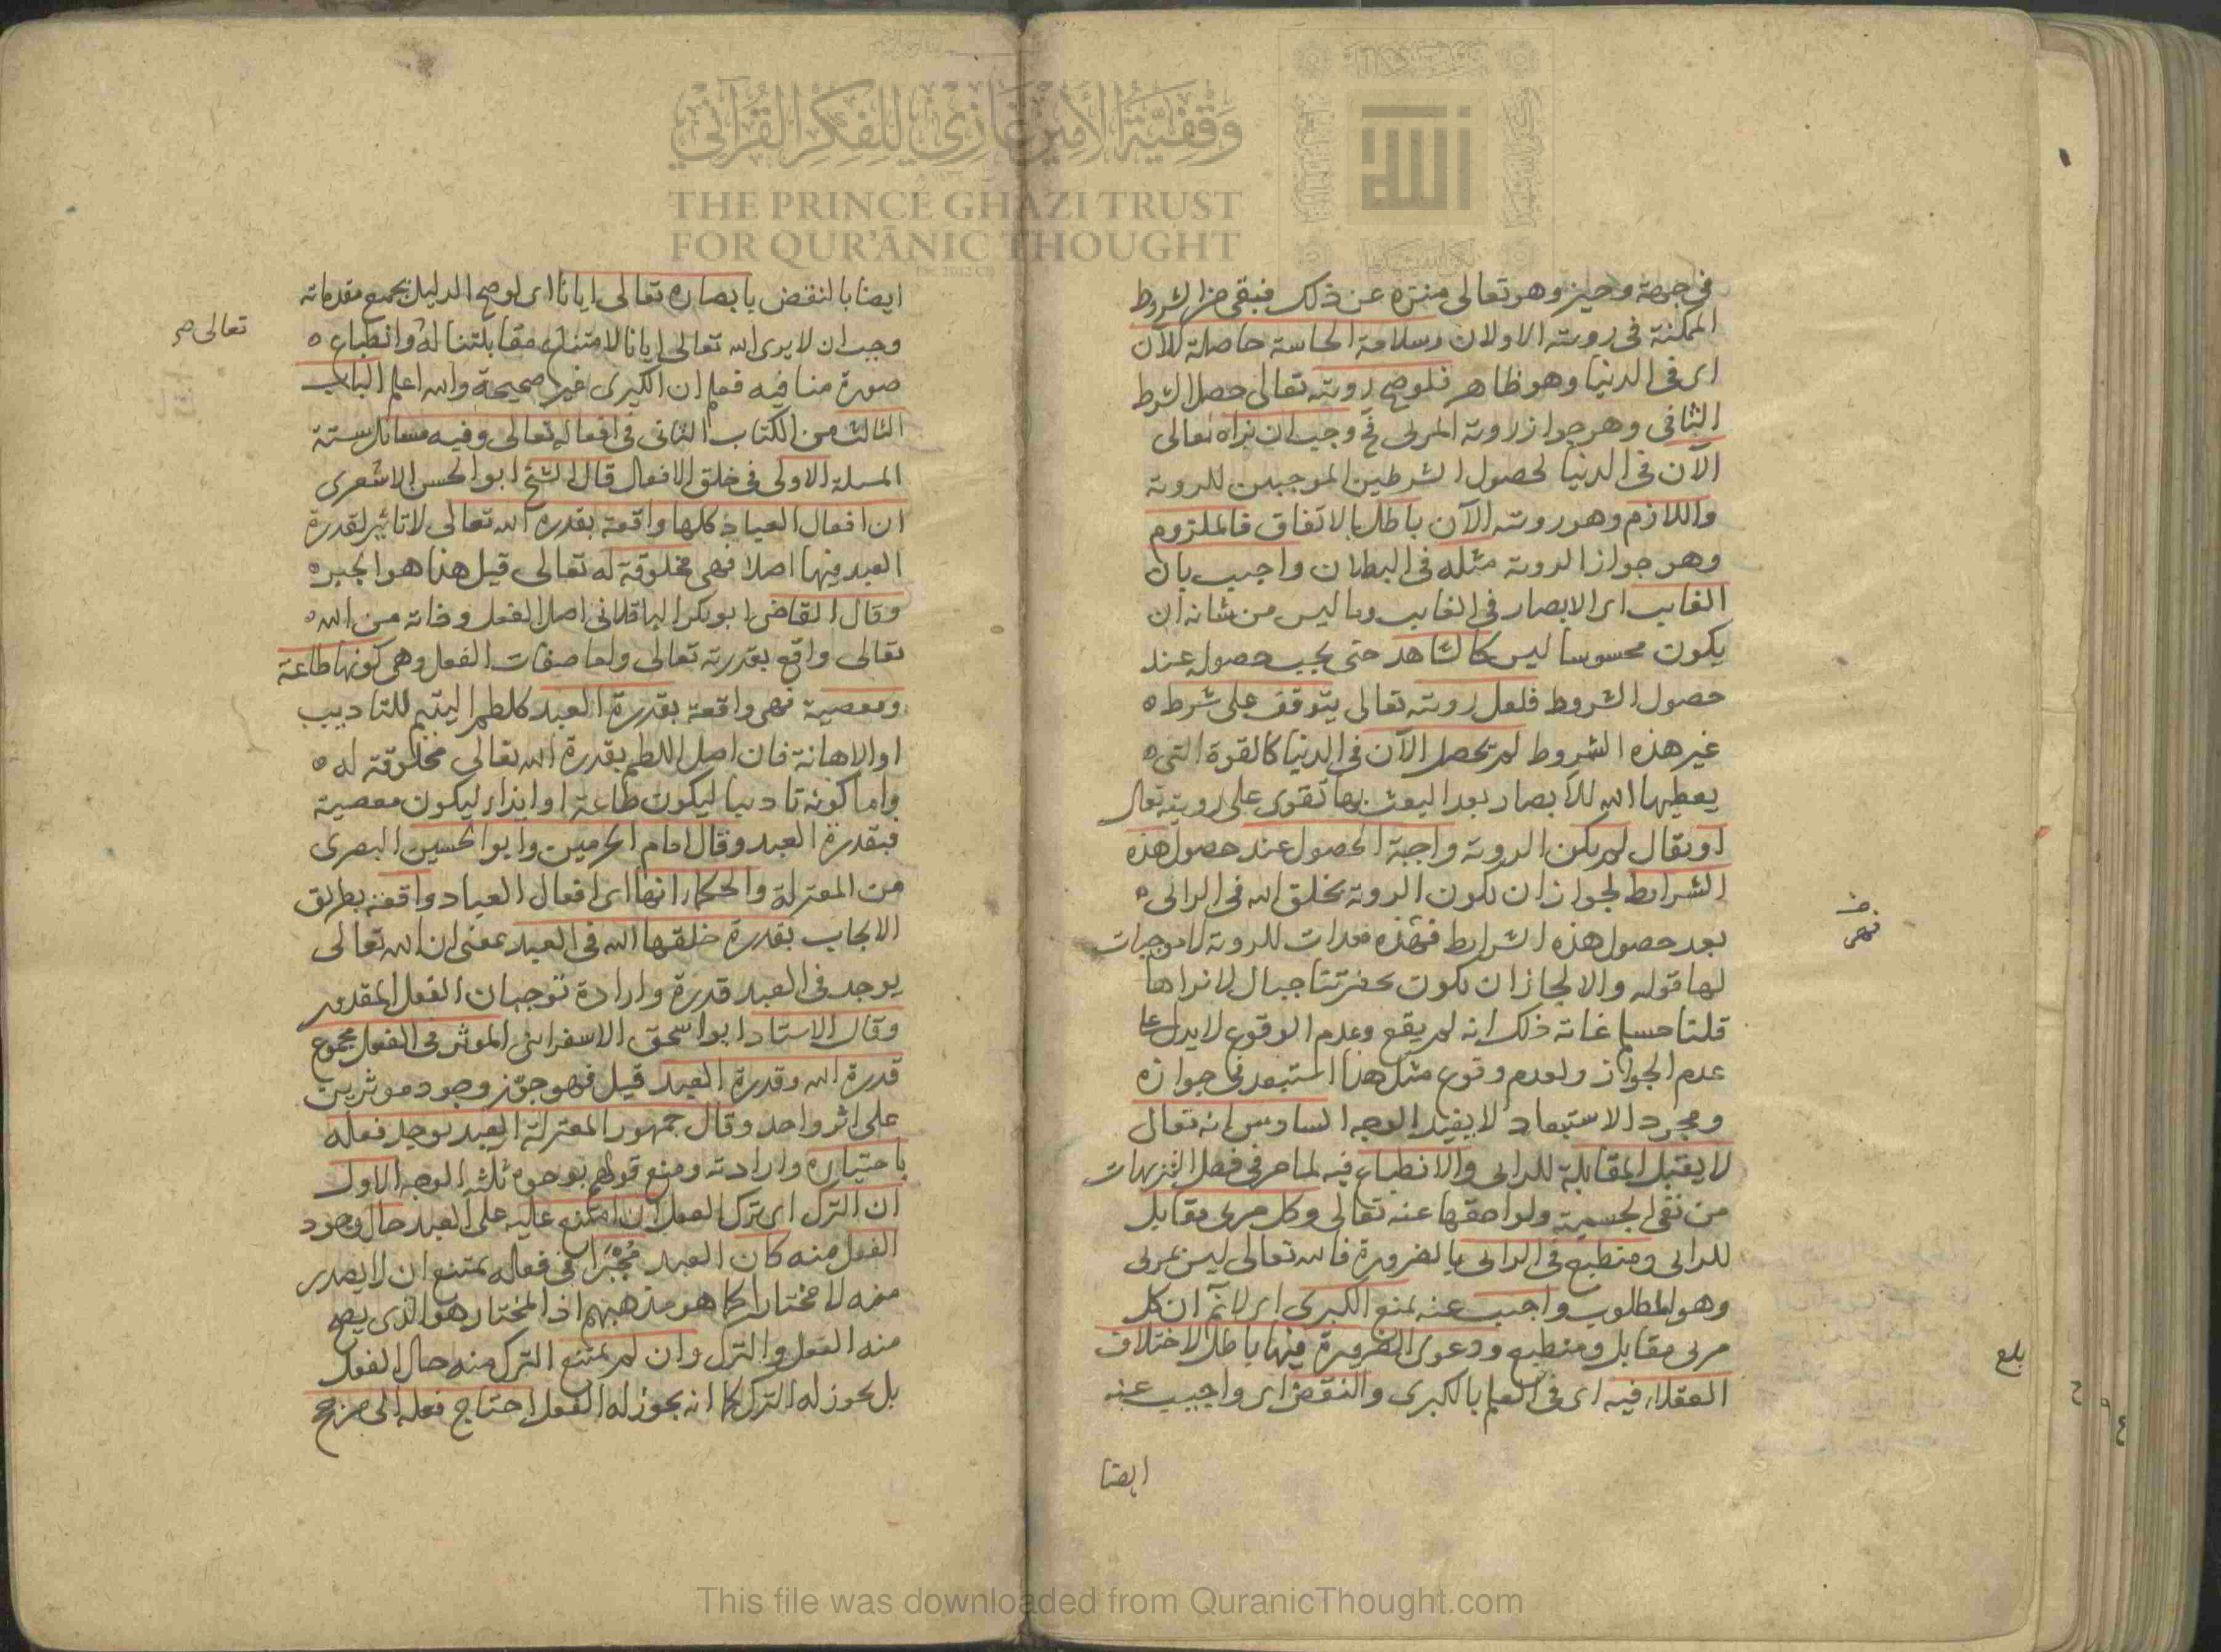 في جهة وحيز وهو تعالى منزه عن ذلك فبقي من الشروط
الممكنة في رويته الاولان وسلامة الحاسة حاصلة للآن
اى في الدنيا وهو ظاهر فلو صح رويته تعالى حصل الشرط
الثاني وهو جواز روية المرئى فح وجب ان نراه تعالى
الآن في الدنيا لحصول الشرطين الموجبين للروية
واللازم وهو رويته الآن باطل بالاتفاق فالملزوم
وهو جواز الروية مثله في البطلان واجيب بان
الغايب اى الابصار في الغايب وما ليس من شانه ان
يكون محسوسا ليس كالشاهد حتى يجب حصوله عند
حصول الشروط فلعل رويته تعالى يتوقف على شرط ه
غير هذه الشروط لم تحصل الآن في الدنيا كالقوة التى ه
يعطيها الله للابصار بعد البعث بها تقوى على رويته تعالى
او يقال لم يكن الروية واجبة الحصول عند حصول هذه
الشرايط لجواز ان يكون الروية بخلق الله في الرائى ه
بعد حصول هذه الشرايط فهذه معدات للروية لا موجبات
لها قوله والا لجاز ان يكون بحضرتنا جبال لا نراها
قلنا مسلم غاية ذلك انه لم يقع وعدم الوقوع لا يدل على
عدم الجواز ولعدم وقوع مثل هذا استبعد في جوازه
ومجرد الاستبعاد لا يفيد الوجه السادس انه تعالى
لا يقبل المقابلة للرائى والانطباع فيه لما مر في فصل التنزيهات
من نفى الجسمية ولواحقها عنه تعالى وكل مرئى مقابل
للرائى ومنطبع في الرائى بالضرورة فالله تعالى ليس بمرئى
وهو المطلوب واجيب عنه بمنع الكبرى اى لا نم ان كل
مرئى مقابل ومنطبع ودعوى الضرورة فيها باطل لاختلاف
العقلاء فيه اى في العلم بالكبرى والنقض اى واجيب عنه
ايضا
فهي
بلغ
ايضا بالنقض بابصاره تعالى ايانا اى لو صح الدليل بجميع مقدماته
وجب ان لا يرى الله تعالى ايانا لامتناع مقابلتنا له وانطباع ه
تعالى صح
صورة منا فيه فعلم ان الكبرى غير صحيحة والله اعلم الباب
الثالث من الكتاب الثانى في افعاله تعالى وفيه مسايل ستة
المسلة الاولى في خلق الافعال قال الشيخ ابو الحسن الاشعرى
ان افعال العباد كلها واقعة بقدرة الله تعالى لا تاثير لقدرة
العبد فيها اصلا فهى مخلوقة له تعالى قيل هذا هو الجبر ه
وقال القاضى ابو بكر الباقلانى اصل الفعل وذاته من الله ه
تعالى واقع بقدرته تعالى واما صفات الفعل وهى كونها طاعة
ومعصية فهى واقعة بقدرة العبد كلطم اليتيم للتاديب
او الاهانة فان اصل اللطم بقدرة الله تعالى مخلوقة له ه
واما كونه تاديبا ليكون طاعة او ايذاء ليكون معصية
فبقدرة العبد وقال امام الحرمين وابو الحسين البصرى
من المعتزلة والحكماء انها اى افعال العباد واقعة بطريق
الايجاب بقدرة خلقها الله في العبد بمعنى ان الله تعالى
يوجد في العبد قدرة وارادة توجبان الفعل المقدور
وقال الاستاد ابو اسحق الاسفراينى الموثر في الفعل مجموع
قدرة الله وقدرة العبد قيل فهو جوّز وجود موثرين
على اثر واحد وقال جمهور المعتزلة العبد يوجد فعله
باختياره وارادته ومنع قولهم بوجوه ثلثة الوجه الاول
ان الترك اى ترك الفعل ان امتنع عليه على العبد حال وجود
الفعل منه كان العبد مُجْبَرا في فعاله يمتنع ان لا يصدر
منه لا مختارا كما هو مذهبهم اذ المختار هو الذى يصح
منه الفعل والترك وان لم يمتنع الترك منه حال الفعل
بل يجوز له الترك كما انه يجوز له الفعل احتاج فعله الى مرجح
وقفية الأمير غازي للفكر القرآني
THE PRINCE GHAZI TRUST
FOR QUR'ĀNIC THOUGHT
الله
This file was downloaded from QuranicThought.com